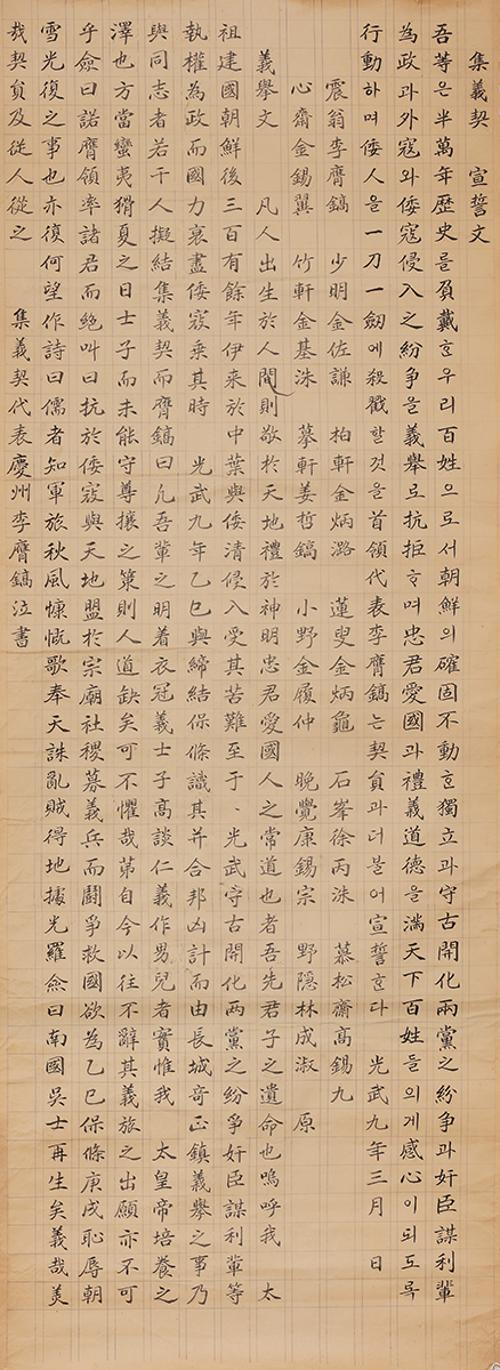 集義契 宣誓文
吾等은半萬年歷史를負戴호우리百姓으로서朝鮮의確固不動호獨立과守古開化兩黨之紛爭과奸臣謀利輩
為政과外寇와倭寇侵入之紛爭을義舉로抗拒호며忠君愛國과禮義道德을滿天下百姓들의게感心이되도록
行動하며倭人을一刀一劒에殺戮할것을首領代表李膺鎬는契員과더불어宣誓호다 光武九年三月 日
震翁李膺鎬 少明金佐謙 柏軒金炳潞 蓮叟金炳龜 石峯徐丙洙 慕松齋高錫九
心齋金錫翼 竹軒金基洙 摹軒姜哲鎬 小野金履仲 晩覺康錫宗 野隱林成淑 原
義舉文 凡人出生於人間則敬於天地禮於神明忠君愛國人之常道也者吾先君子之遺命也嗚呼我 太
祖建國朝鮮後三百有餘年伊来於中葉與倭清侵入受其苦難至于、光武守古開化兩黨之紛爭奸臣謀利輩等
執權為政而國力衰盡倭寇乘其時 光武九年乙巳與締結保條識其并合邦凶計而由長城奇正鎮義舉之事乃
與同志者若干人擬結集義契而膺鎬曰凡吾輩之明着衣冠義士子高談仁義作男兒者實惟我 太皇帝培養之
澤也方當蠻夷猾夏之日士子而未能守尊攘之策則人道缺矣可不懼哉第自今以往不辭其義旅之出願亦不可
乎僉曰諾膺領率諸君而絶叫曰抗於倭寇與天地盟於宗廟社稷募義兵而鬪爭救國欲為乙巳保條庚戌恥辱朝
雪光復之事也亦復何望作詩曰儒者知軍旅秋風慷慨歌奉天誅亂賊得地據光羅僉曰南國吳士再生矣義哉美
哉契員及從人從之 集義契代表慶州李膺鎬泣書